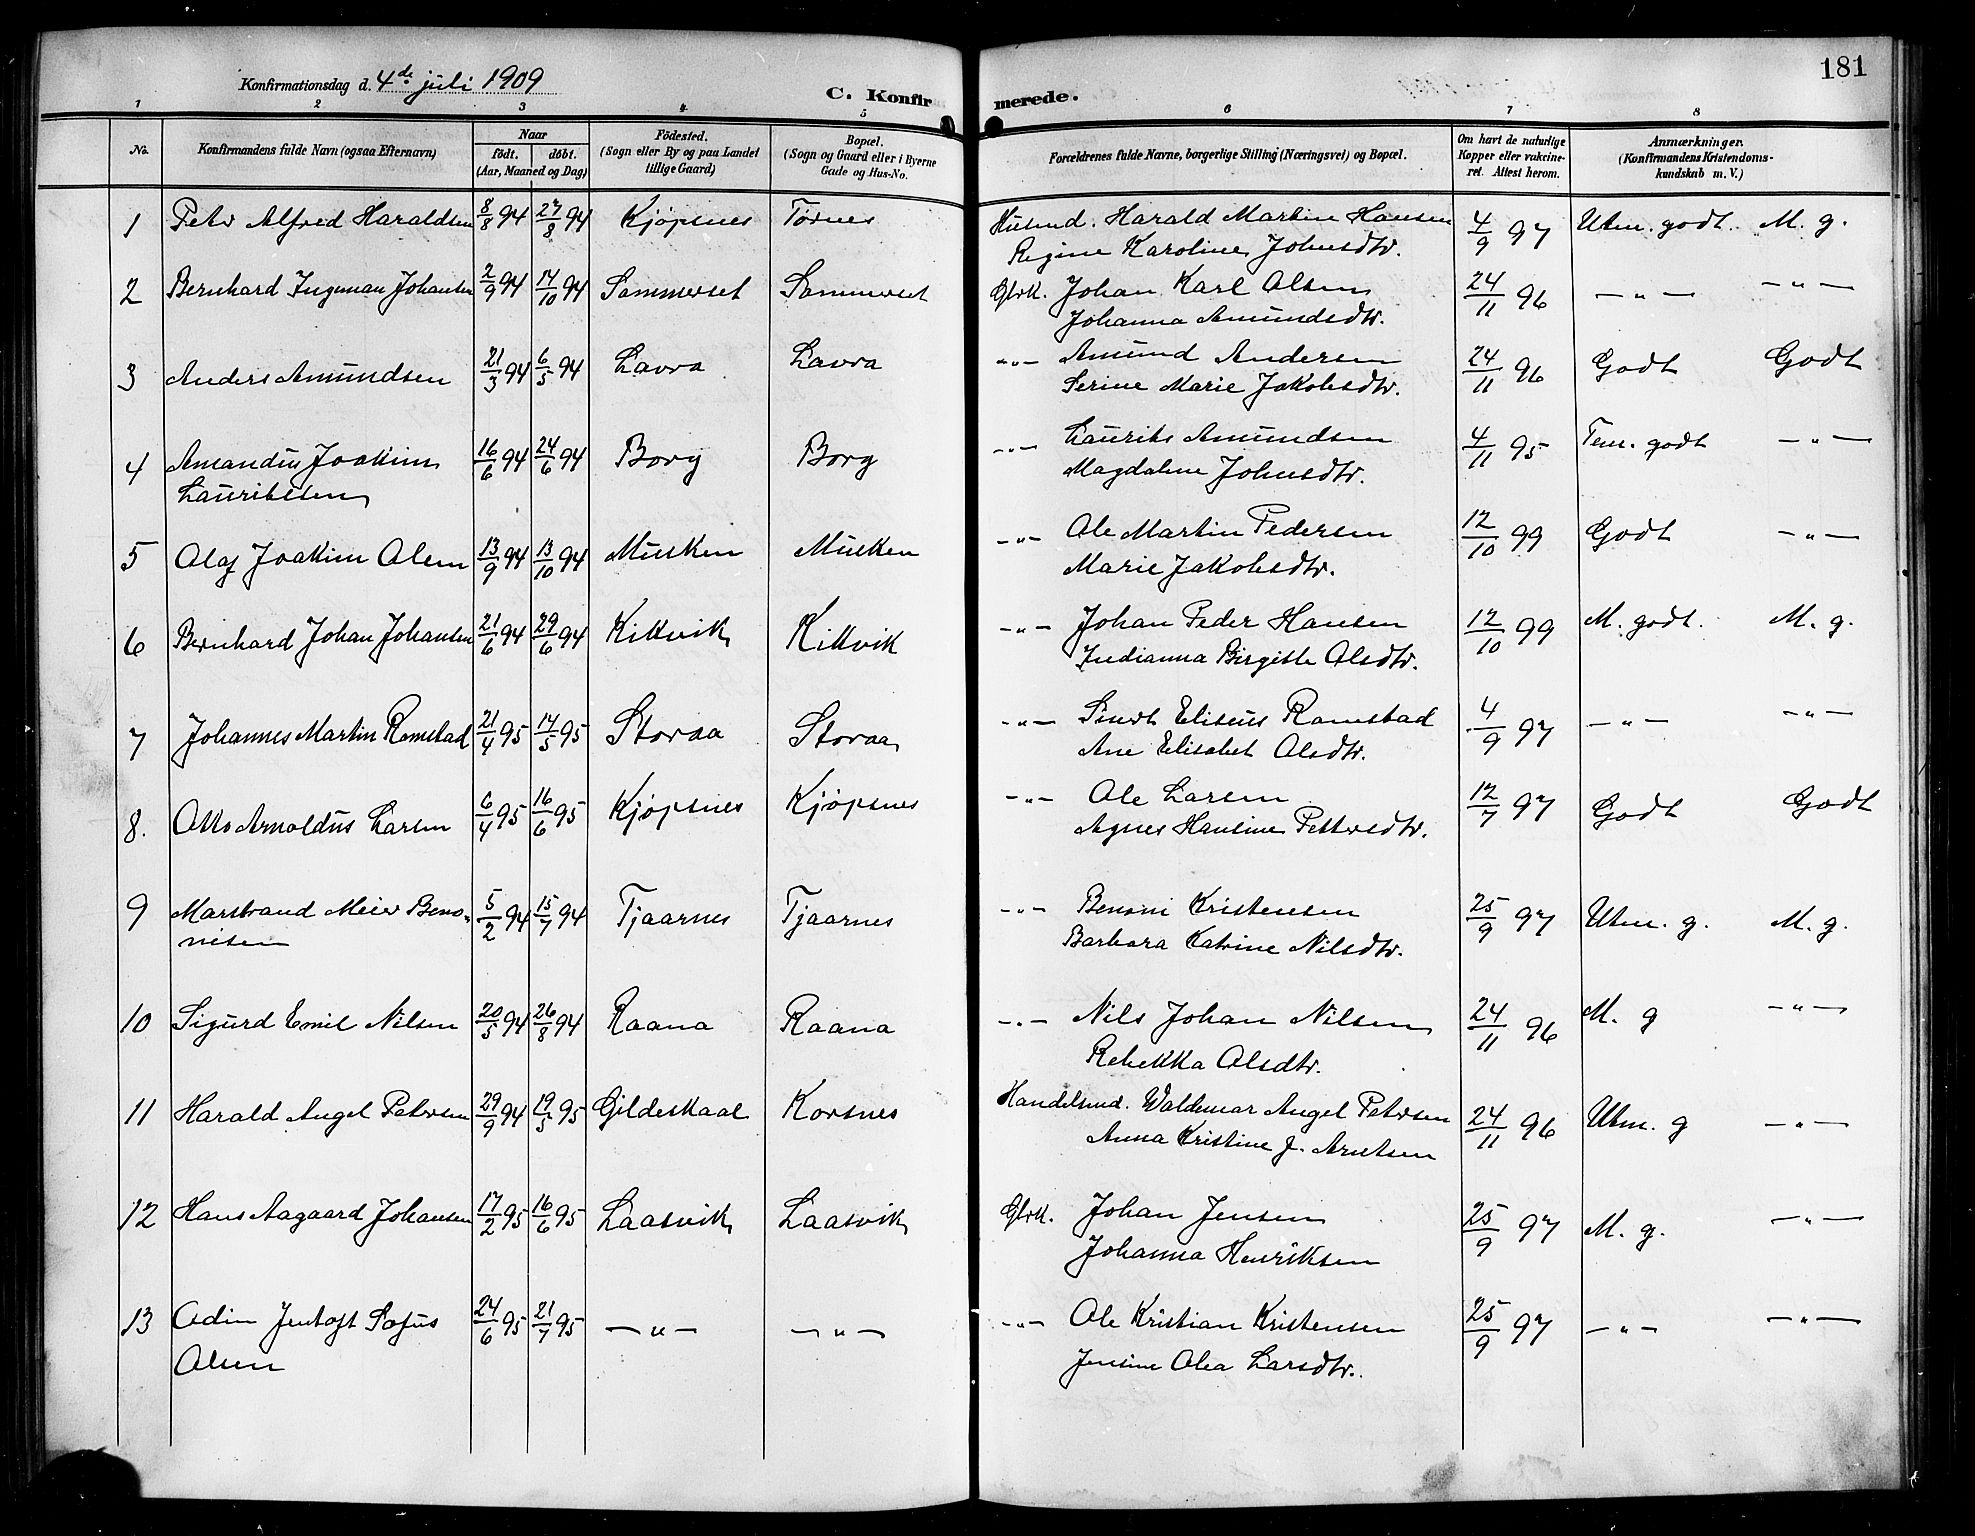 181
Konfirmationsdag d. 4de juli 1909
C. Konfirmerede.
1 2 3 4 5 6 7 8
No. Konfirmandens fulde Navn (ogsaa Efternavn) Naar født. døbt. (Aar, Maaned og Dag) Födested. (Sogn eller By og paa Landet tillige Gaard) Bopæl. (Sogn og Gaard eller i Byerne Gade og Hus-No. Forældrenes fulde Navne, borgerlige Stilling (Næringsvei) og Bopæl. Om havt de naturlige Kopper eller vakcineret. Attest herom. Anmærkninger. (Konfirmandens Kristendomskundskab m. V.)
1 Peter Alfred Haraldsen 8/8 94 27/8 94 Kjøpsnes Tørnes Husmd. Harald Martin Hansen 4/9 97 Utm. godt. M. g.
Regine Karoline Johnsdtr.
2 Bernhard Ingeman Johansen 2/9 94 14/10 94 Sommerset Sommerset Gbrk. Johan Karl Olsen 24/11 96 —„— —„—
Johanna Amundsdtr.
3 Anders Amundsen 21/3 94 6/5 94 Lavra Lavra —„— Amund Andersen 24/11 96 Godt Godt
Serine Marie Jakobsdtr.
4 Amandus Joakim 16/6 94 24/6 94 Borg Borg —„— Laurits Amundsen 4/11 95 Tem. godt —„—
Lauritssen Magdalene Johnsdtr.
5 Olaf Joakim Olsen 13/9 94 13/10 94 Musken Musken —„— Ole Martin Pedersen 12/10 99 Godt —„—
Marie Jakobsdtr.
6 Bernhard Johan Johansen 21/6 94 29/6 94 Kilkvik Kilkvik —„— Johan Peder Hansen 12/10 99 M. godt. M. g.
Indianna Birgitte Olsdtr.
7 Johannes Martin Ramstad 21/4 95 14/5 95 Storaa Storaa —„— Sivert Eliseus Ramstad 4/9 97 —„— —„—
Ane Elisabet Olsdtr.
8. Otto Arnoldus Larsen 6/4 95 16/6 95 Kjøpsnes Kjøpsnes —„— Ole Larsen 12/7 97 Godt Godt
Agnes Hansine Pettersdtr.
9 Marstrand Meier Beno- 5/2 94 15/7 94 Tjaarnes Tjaarnes —„— Benoni Kristensen 25/9 97 Utm. g. M. g.
nisen Barbara Katrine Nilsdtr.
10 Sigurd Emil Nilsen 20/5 94 26/8 94 Raana Raana —„— Nils Johan Nilsen 24/11 96 M. g —„—
Rebekka Olsdtr.
11 Harald Angel Petersen 29/9 94 19/5 95 Gildeskaal Korsnes Handelsmd. Waldemar Angel Petersen 24/11 96 Utm. g —„—
Anna Kristine J. Arntsen
12 Hans Aagaard Johansen 17/2 95 16/6 95 Laasvik Laasvik Gbrk. Johan Jensen 25/9 97 M. g. —„—
Johanna Henriksen
13 Odin Jentoft Sofus 24/6 95 21/7 95 —„— —„— —„— Ole Kristian Kristensen 25/9 97 —„— —„—
Olsen Jensine Olea Larsdtr.